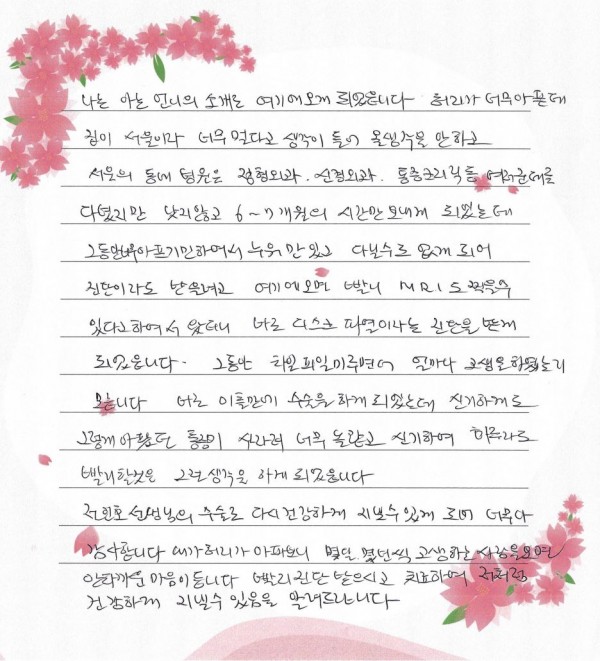 나는 아는 언니의 소개로 여기에오게 되었읍니다 허리가 너무아픈데
집이 서울이라 너무 멀다고 생각이 들어 올생각을 안하고
서울의 동네 병원은 정형외과. 신경외과. 통증크리닉등 여러군데를
다녔지만 낫지않고 6~7개월의 시간만보내게 되었는데
그동안너무아프기만하여서 누워만있고 다닐수도 없게 되어
진단이라도 받을려고 여기에오면 빨리 MRI도찍을수
있다고하여서 왔더니 바로 디스크 파열이라는 진단을 받게
되었읍니다. 그동안 차일피일미루면서 얼마나 고생을하였는지
모릅니다 바로 이틀만에 수술을하게 되었는데 신기하게도
그렇게아팠던 통증이 사라져 너무 놀랐고 신기하여 하루라도
빨리할것을 그런생각을 하게되었읍니다
선생님의 수술로 다시건강하게 지낼수있게 되어 너무나
감사합니다 내가허리가 아파보니 몇년씩 고생하는 사람을보면
안타까운 마음이듭니다 빨리진단받으시고 치료하여 저처럼
건강하게 지낼수있음을 알려드립니다